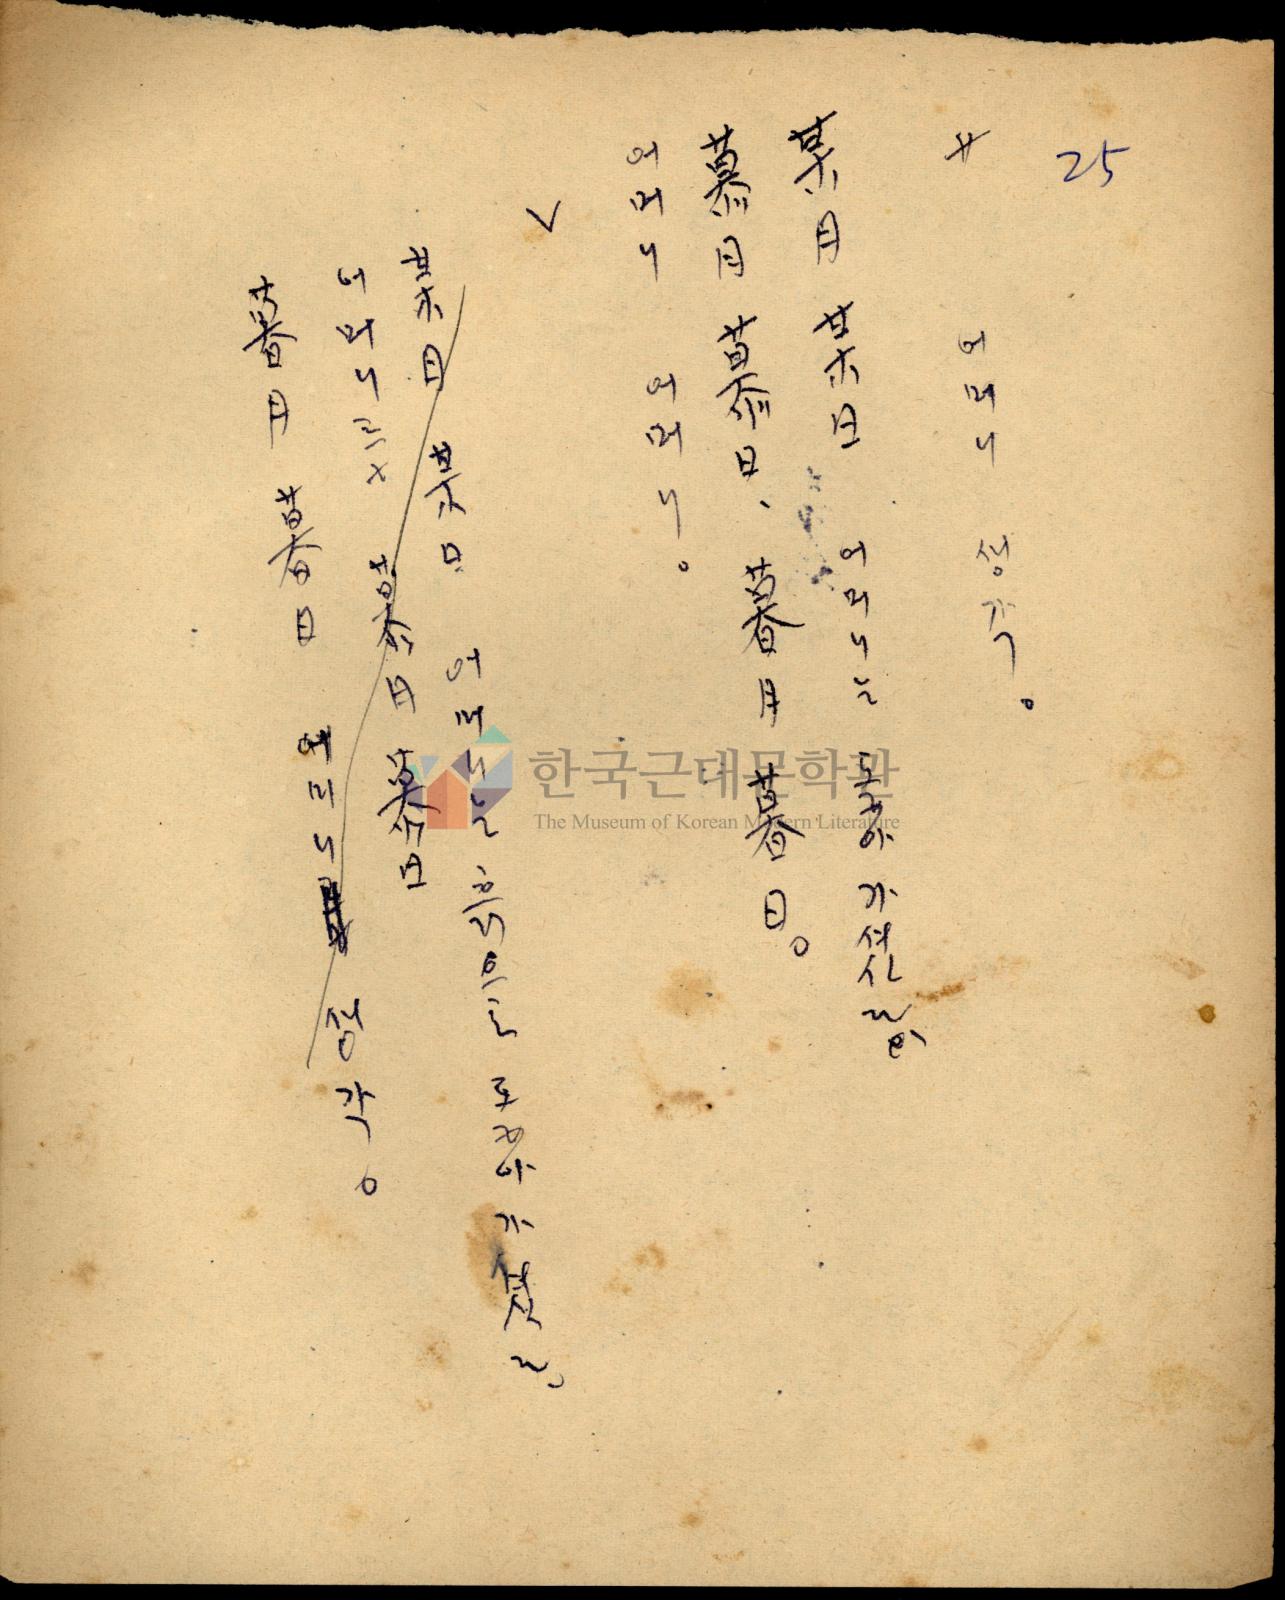 25
# 어머니 생각。
某月 某日 어머니는 돌아 가셨습
慕月 慕日、 暮月 暮日。
어머니 어머니。
某月 某日 어머니는 흙으로 돌아 가셨
어머니 慕月 慕日
暮月 暮日 어머니 생각。
한국근대문학관
The Museum of Korean Modern Literature